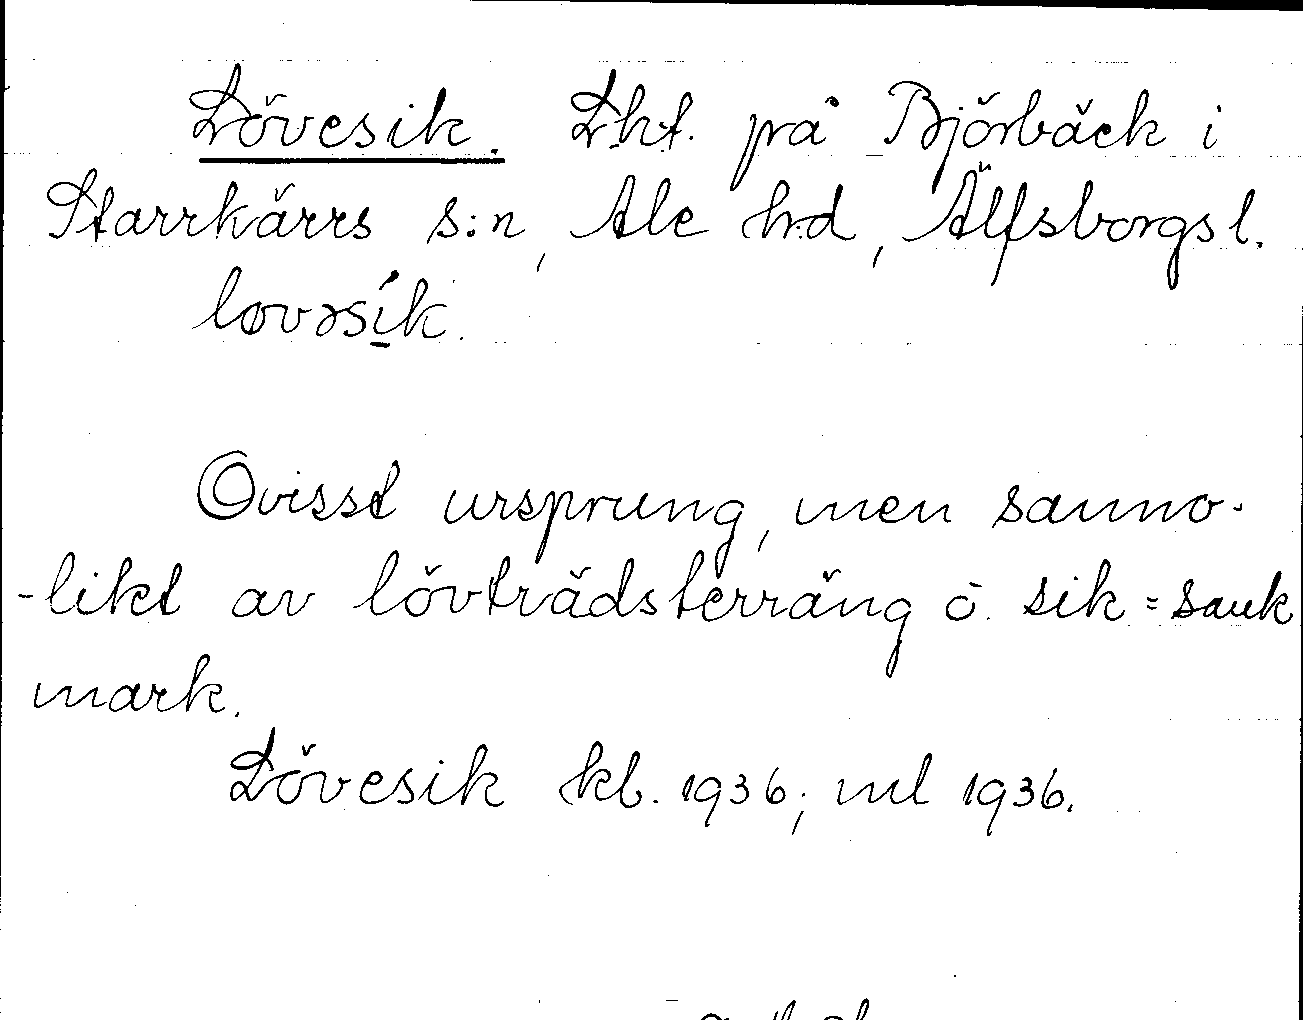 Lövesik. Lht. på Björbäck i
Starrkärrs s:n, Ale hd, Älfsborgs l.
løvəsík.
Ovisst ursprung, men sanno-
-likt av lövträdsterräng o. sik = sank
mark.
Lövesik kb. 1936; ml 1936.